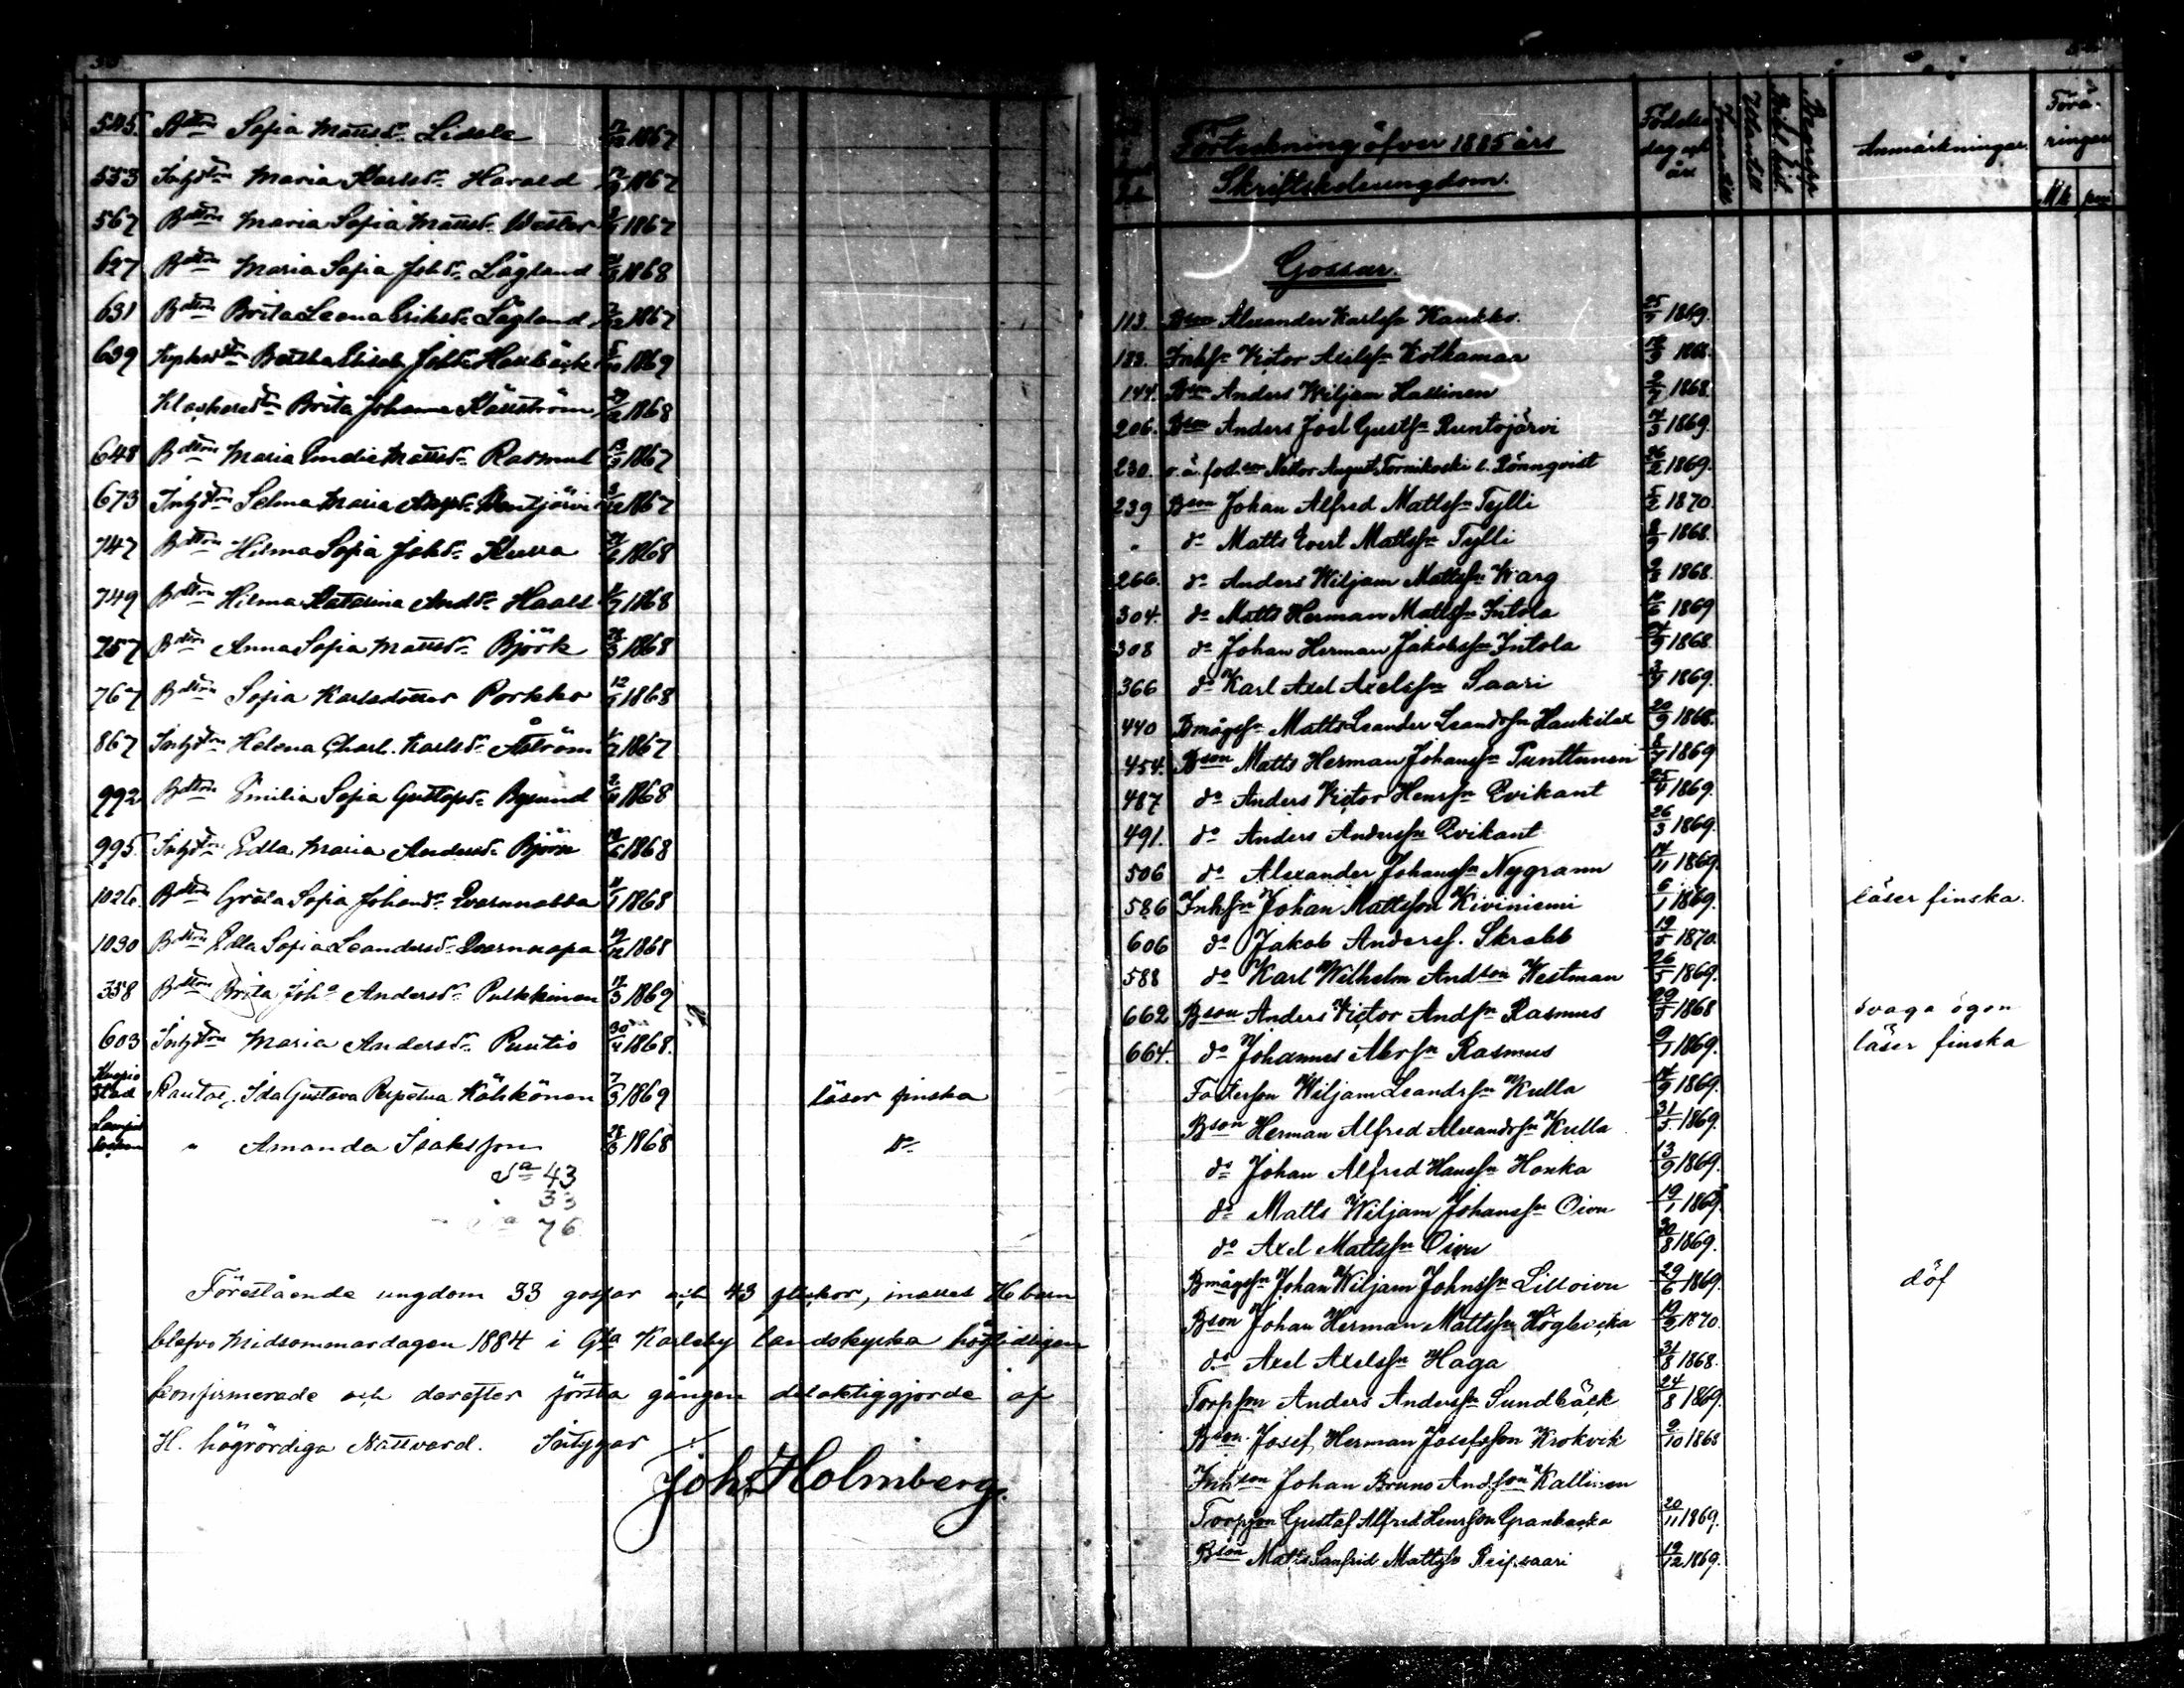 545. Bdttrn Sofia Mattsdr Lidele 1867
553 Inhdtrn Maria Karlsdr Harald 1867
567 Bdttrn Maria Sofia Mattsdr Wester 1867
627 Bdttrn Maria Sofia Johdr Lågland 1868
631 Bdttrn Brita Leena Eriksdr Lågland 1867
639 Johdr 5/10 1869
Klockaredtrn Brita Johanna Källström 29/12 1868
648 Bdttrn Maria Mattsdr Rasmus 1867
673 Inhdtrn Selma Maria 1867
747 Bdttrn Hilma Sofia Johdr Kurra 1868
749 Bdttrn Hilma Katarina Andsdr Haals 1868
757 Bdttrn Anna Sofia Mattsdr Björk 1868
767 Bdttrn Sofia Karlsdotter Porkko 1868
867 Inhdtrn Helena Charl. Karlsdr Åström 1867
992 Bdttrn Emilia Sofia Gustafsdr Byskund 1868
995. Inhdtrn Edla Maria Andersdr Björn 1868
1026. Bdttrn Greta Sofia Johansdr Qvarnnabba 1868
1030 Bdttrn Edla Sofia Leandersdr 19/12 1868
338 Bdttrn Brita Joha Andersdr Pulkkinen 17/3 1869
603 Inhdtrn Maria Andersdr Puutio 30/4 1868.
Kuopio
Stad Rautae, Ida Gustava Perpetua Kähkönen 7/3 1869 läser finska
" Amanda Isaksson 28/3 1868 do
Sa 43
" 33
76
Förestående ungdom 33 gossar och 43 flickor, inalles 76 barn
blefvo Midsommardagen 1884 i Gla Karleby landskyrka högtidligen
konfirmerade och derefter första gången delaktiggjorde af
H. högvördiga Nattvard. Intygar
Joh. Holmberg.
Förteckning öfver 1885 års
Skriftskoleungdom.
Födelse
dag och
år
Innantill
Utantill
Bibl. hist.
Begrepp
Anmärkningar.
Förä-
ringar
Mk pni
Gossar.
113. Bson Alexander Karlssn Kaukko. 25/7 1869.
133. Inhsn Victor Axelssn Kotkamaa 1868.
144. Bson Anders Wiljam Hassinen 2/7 1868.
206. Bson Anders Joel Gustsn Runtojärvi 14/3 1869.
230. o. ä. fod. son Nestor August Tornikoski l. Rönnqvist 26/2 1869.
239 Bson Johan Alfred Mattssn Tylli 5/2 1870.
" do Matts Evert Mattssn Tylli 1868.
266. do Anders Wiljam Mattssn Warg 1868.
304. do Matts Herman Mattssn Intola 10/6 1869
308 do Johan Herman Jakobssn Intola 1868.
366 do Karl Axel Axelssn Saari 1869.
440 Bmågsn Matts Leander Leandsn Haukilax 20/9 1868.
454. Bson Matts Herman Johanssn Punttunen 1869
487 do Anders Victor Henrsn Qvikant 25/4 1869.
491. do Anders Anderssn Qvikant 26/3 1869.
506 do Alexander Johanssn Nygrann 14/11 1869.
586 Inhsn Johan Mattsson Kiviniemi 6/1 1869. läser finska.
606 do Jakob Anderss. Skrabb 19/5 1870.
588 do Karl Wilhelm Andson Westman 26/5 1869.
662 Bson Anders Victor Andsn Rasmus 29/5 1868 svaga ögon
664. do Johannes Abrsn Rasmus 9/1 1869. läser finska
Fosterson Wiljam Leandrsn Kulla 14/9 1869.
Bson Herman Alfred Alexandersn Kulla 31/5 1869.
do Johan Alfred Hanssn Honka 13/9 1869.
do Matts Wiljam Johanssn Oivu 19/1 1869
do Axel Mattssn Oivu 30/8 1869.
Bmågsn Johan Wiljam Johnssn Lilloivu 29/6 1869. döf
Bson Johan Herman Mattssn Höglvika 19/2 1870.
do Axel Axelssn Haga 31/8 1868.
Torpson Anders Anderssn Sundbäck 24/8 1869.
Bson Josef Herman Josefsson Krokvik 9/10 1868
Inhson Johan Bruno Andsson Kallinen
Torpson Gustaf Alfred Henrson Granbacka 20/11 1869.
Bson Matts Sanfrid Mattss Reipsaari 19/12 1869.